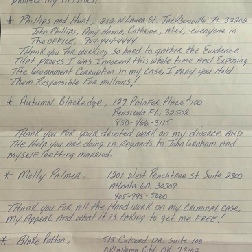 * Phillips and Hunt, Jacksonville FL 32202
John Phillips, Amy Hanna, Cathrine, Alex, everyone in
The office.
Thank you for working so hard to gather the evidence
That proves I was innocent this whole time and exposing
The Government Corruption in my case. I hope you hold
Them Responsible for millions!
* Autumn Blackledge, 127 Palafox Place #100
Pensacola Fl, 32502
Thank you for your devoted work on my divorce and
The help you are doing in regards to John Graham and
myself getting married.
* Molly Palmer, 1201 West Peachtree St Suite 2300
Atlanta GA. 30309
Thank you for all the hard work on my criminal case
My Appeal and what it is taking to get me FREE!
* Blake Patton, Suite 100
Oklahoma City, OK